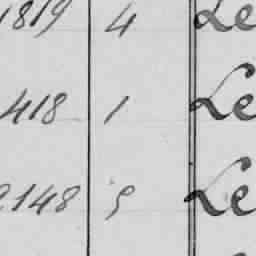 1819 4 Le
418 1 Le
2148 5 Le